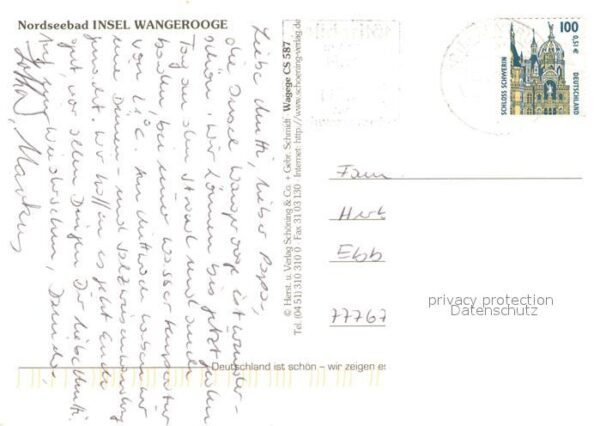 Nordseebad INSEL WANGEROOGE
Liebe Mutti, lieber Papa,
die Insel Wangerooge ist wunder-
schön. Wir können bis jetzt jeden
Tag an den Strand und auch
baden bei einer Wassertemperatur
von °C. Am Mittwoch haben wir
eine Dünen- und Salzwiesenwanderung
gemacht. Wir hoffen es geht Euch
gut, vor allen Dingen Dir liebe Mutti.
Auf Wiedersehen,
Markus
© Herst. u. Verlag Schöning & Co. + Gebr. Schmidt · Wagege CS 587
Tel. (04 51) 310 310 0 · Fax 31 03 130 · Internet: http://www.schoening-verlag.de
100
0,51 €
SCHLOSS SCHWERIN
DEUTSCHLAND
Fam.
Herb
Ebb
77767
privacy protection
Datenschutz
Deutschland ist schön – wir zeigen es